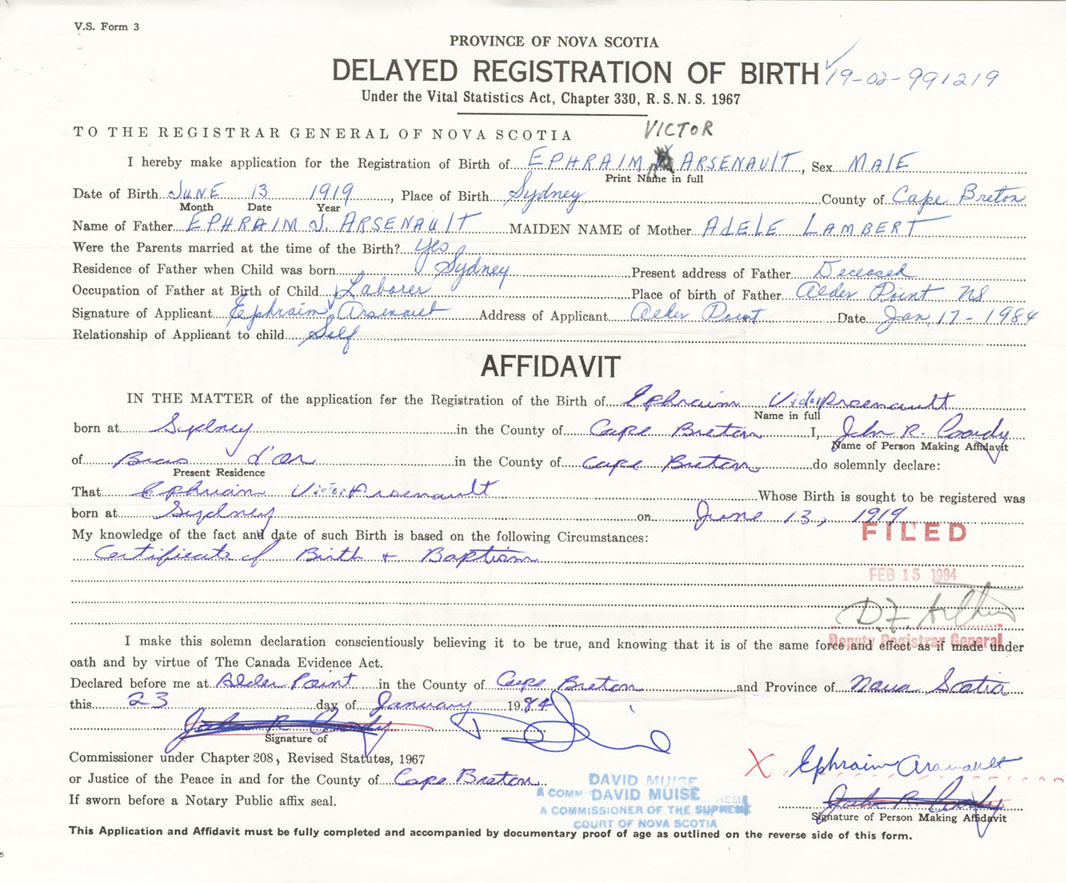 V.S. Form 3
PROVINCE OF NOVA SCOTIA
DELAYED REGISTRATION OF BIRTH 19-02-991219
Under the Vital Statistics Act, Chapter 330, R.S.N.S. 1967
TO THE REGISTRAR GENERAL OF NOVA SCOTIA VICTOR
I hereby make application for the Registration of Birth of EPHRAIM ARSENAULT, Sex MALE
Print Name in full
Date of Birth JUNE 13 1919, Place of Birth Sydney County of Cape Breton
Month Date Year
Name of Father EPHRAIM J. ARSENAULT MAIDEN NAME of Mother ADELE LAMBERT
Were the Parents married at the time of the Birth? Yes
Residence of Father when Child was born Sydney Present address of Father Deceased
Occupation of Father at Birth of Child Laborer Place of birth of Father Alder Point NS
Signature of Applicant Ephraim Arsenault Address of Applicant Alder Point Date Jan. 17-1984
Relationship of Applicant to child Self
AFFIDAVIT
IN THE MATTER of the application for the Registration of the Birth of Ephraim Victor Arsenault
Name in full
born at Sydney in the County of Cape Breton I, John R.
Name of Person Making Affidavit
of Bras d'Or in the County of Cape Breton do solemnly declare:
Present Residence
That Ephraim Victor Arsenault Whose Birth is sought to be registered was
born at Sydney on June 13, 1919
My knowledge of the fact and date of such Birth is based on the following Circumstances:
FILED
Certificate of Birth + Baptism
FEB 15 1984
Deputy Registrar General
I make this solemn declaration conscientiously believing it to be true, and knowing that it is of the same force and effect as if made under
oath and by virtue of The Canada Evidence Act.
Declared before me at Alder Point in the County of Cape Breton and Province of Nova Scotia
this 23 day of January 1984
Signature of
Commissioner under Chapter 208, Revised Statutes, 1967
X Ephraim Arsenault
or Justice of the Peace in and for the County of Cape Breton
DAVID MUISE
DAVID MUISE
If sworn before a Notary Public affix seal.
A COMMISSIONER OF THE SUPREME
COURT OF NOVA SCOTIA
Signature of Person Making Affidavit
This Application and Affidavit must be fully completed and accompanied by documentary proof of age as outlined on the reverse side of this form.